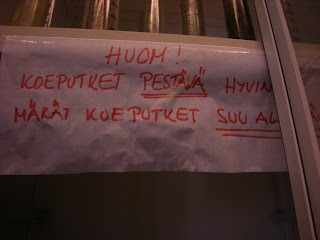 HUOM!
KOEPUTKET PESTÄVÄ HYVIN
MÄRÄT KOEPUTKET SUU AL